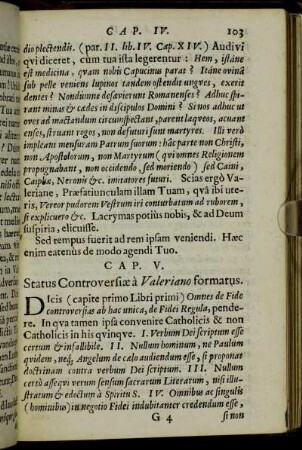 CAP. IV. 103
dio plectendis. (par. II. lib. IV. Cap. XIV.) Audivi
qvi diceret, cum tua ista legerentur: Hem, istane
est medicina, qvam nobis Capucinus parat? Itane ovinâ
sub pelle veniens lupinos tandem ostendit ungves, exerit
dentes? Nondumne desævierunt Romanenses? Adhuc spi-
rant minas & cades in discipulos Domini? Si nos adhuc ut
oves ad mactandum circumspectant, parent laqveos, acuant
enses, struant rogos, non desuturi sunt martyres. Illi verò
impleant mensuram Patrum suorum: hâc parte non Christi,
non Apostolorum, non Martyrum (qvi omnes Religionem
propugnabant, non occidendo, sed moriendo) sed Caini,
Caphæ, Neronis &c. imitatores futuri. Scias ergò Va-
leriane, Præfatiunculam illam Tuam, qvâ ibi ute-
ris, Vereor pudorem Vestrum iri conturbatum ad ruborem,
si explicuero &c. Lacrymas potiùs nobis, & ad Deum
suspiria, elicuisse.
Sed tempus fuerit ad rem ipsam veniendi. Hæc
enim eatenus de modo agendi Tuo.
CAP. V.
Status Controversiæ à Valeriano formatus.
Dicis (capite primo Libri primi) Omnes de Fide
controversias ab hac unica, de Fidei Regula, pende-
re. In qva tamen ipsa convenite Catholicis & non
Catholicis in his qvinqve. I. Verbum Dei scriptum esse
certum & infallibile. II. Nullum hominum, ne Paulum
qvidem, neq; Angelum de cælo audiendum esse, si proponat
doctrinam contra verbum Dei scriptum. III. Nullum
certò asseqvi verum sensum sacrarum Literarum, nisi illu-
stratum & edoctum à Spiritu S. IV. Omnibus ac singulis
(hominibus) in negotio Fidei indubitanter credendum esse,
G 4 si non